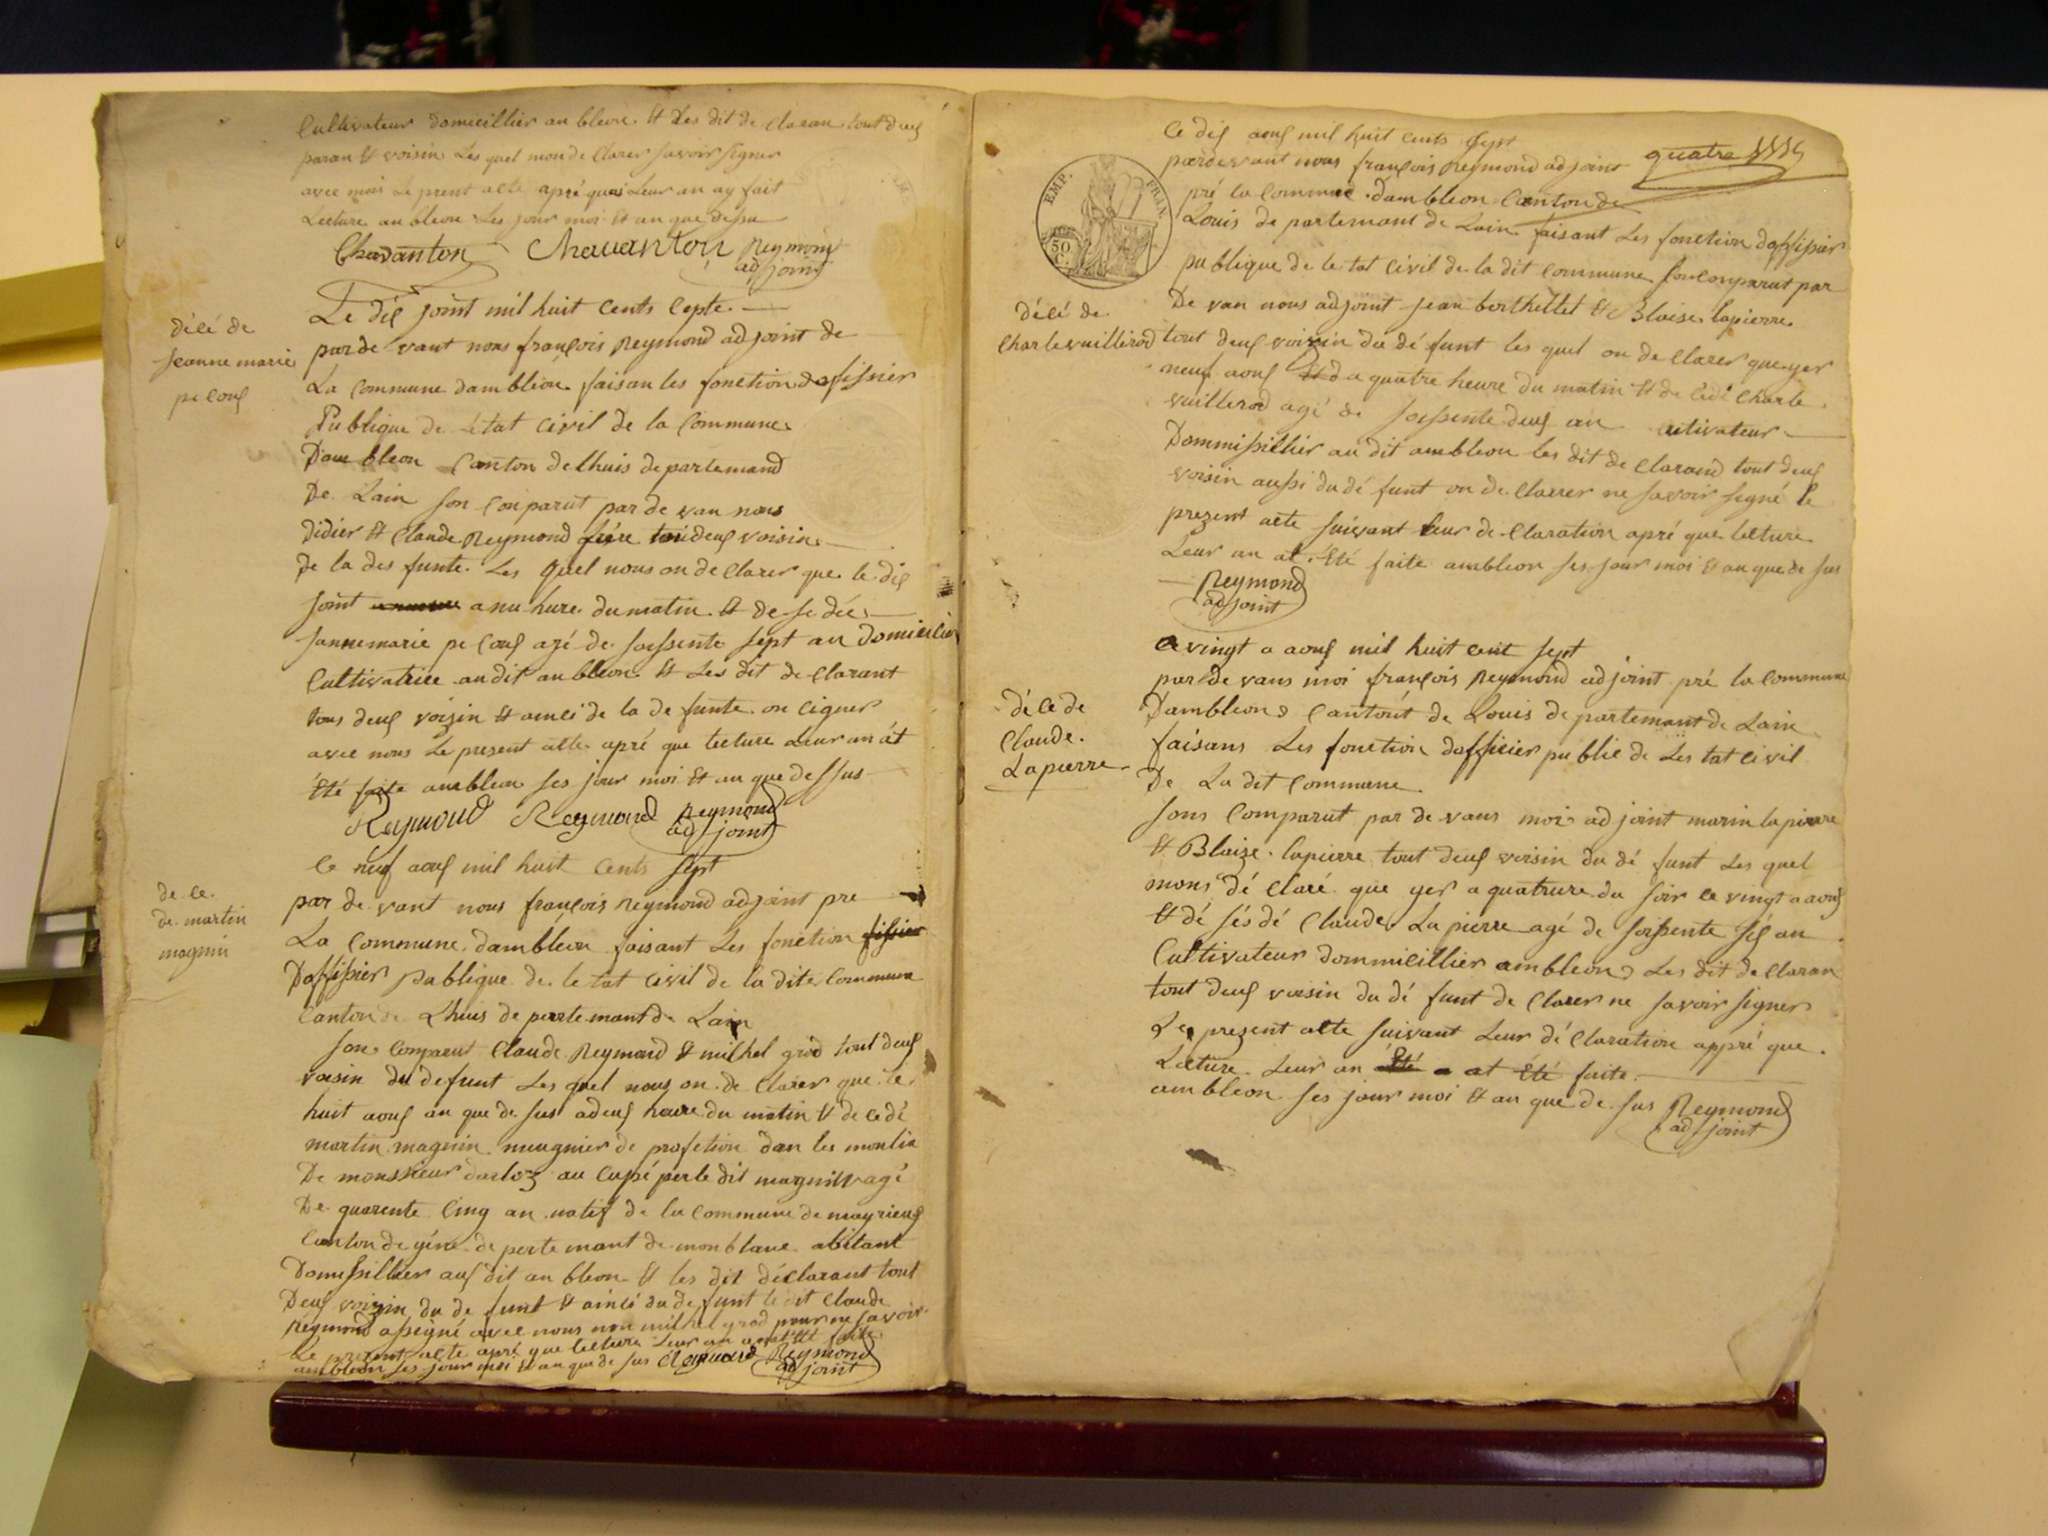 Cultivateur domicillier anbleon & Les dit de claran tout deus
paran & voisin Les quel mon de clarer savoir signer
avec moi Le prent acte apré quoi Leur an ay fait
Lecture anbleon Les jour moi & an que dessu
Chavanton Chavanton Reymond
adjoint
Le dis joint mil huit cents cepte
décé de
jeanne marie
pe cous
par de vant nous françois Reymond adjoint de
La commune dambléon faisan les fonction dofisier
Publique de létat civil de la commune
Dambleon Canton de lhuis departemand
De Lain son conparut par de van nous
didier & Claude Reymond frére tou deus voisin
de la des funte Les quel nous on de clarer que le dis
joint a nu hure du matin & de se dée
jannemarie pe cous agé de soissente sept an domicilier
Cultivatrice audit anbleon & Les dit de clarant
tous deus voizin & amis de la de funte on cigner
avec nous Le present acte apré que lecture Leur an át
été faite anbleon ses jour moi & an que dessus
Reymond Reymond Reymond
adjoint
le neuf aous mil huit cents sept
de ce
de martin
magnin
par de vant nous françois Reymond adjoint pre
La commune dambléon faisant Les fonction fissier
Doffisier publique de le tat civil de la dite commune
Canton de Lhuis de partemant de Lain
son comparut Claude Reymond & michel grod tout deus
voisin du defunt Les quel nous on de clarer que le
huit aous an que de sus a deus heure du matin & de cedé
martin magnin meugnier de profetion dan les moulin
De monssieur darloz au cupé par le dit magnin agé
De quarente Cinq an natif de la commune de mayrieus
Canton de géne de parte mant de monblanc abitant
Domissillier aus dit anbleon & les dit déclarant tout
Deus voizin du de funt & amis du de funt le dit Claude
Reymond a segné avec nous non michel grod pour ne savoir
Le present acte apré que lecture Leur an a été faite
ambleon ses jour moi & an que de sus Reymond Reymond
adjoint
quatre
EMP. FRAN.
50
C.
Ce dis aous mil huit cents sept
pardevant nous françois Reymond adjoint
pré la commune dambleon Canton de
Louis de partemant de Lain faisant Les fonction doffisier
publique de le tat civil de la dit commune son comparut par
De van nous adjoint jean berthellet & Blaise lapierre
décé de
Charle vuillerod
tout deus voisin du dé funt les quel on de clarer que yer
neuf aous a quatre heure du matin & de cedé Charle
vuillerod agé de soissente deus an cultivateur
Dommissillier au dit ambleon les dit de clarand tout deus
voisin aussi du dé funt on de clarer ne savoir segné le
prezent acte suivant leur de claration apré que lecture
Leur an at été faite ambleon ses jour moi & an que de sus
Reymond
adjoint
a vingt a aous mil huit cent sept
par de vans moi françois Reymond adjoint pré la commune
décé de
Claude
Lapierre
Dambleon Cantont de Louis de partemant de Lain
faisans Les fonction dofficier public de Les tat civil
De La dit commune
sons comparut par de vans moi adjoint marin lapierre
& Blaize lapierre tout deus voisin du dé funt Les quel
mons dé claré que yer a quatrure du soir le vingt a aous
& dé sés dé Claude La pierre agé de soissente sis an
Cultivateur dommicillier ambleon Les dit de claran
tout deus voisin du dé funt de clarer ne savoir signer
Le prezent acte suivant Leur dé claration appré que
Lecture Leur an été a at été faite
ambleon ses jour moi & an que de sus Reymond
adjoint